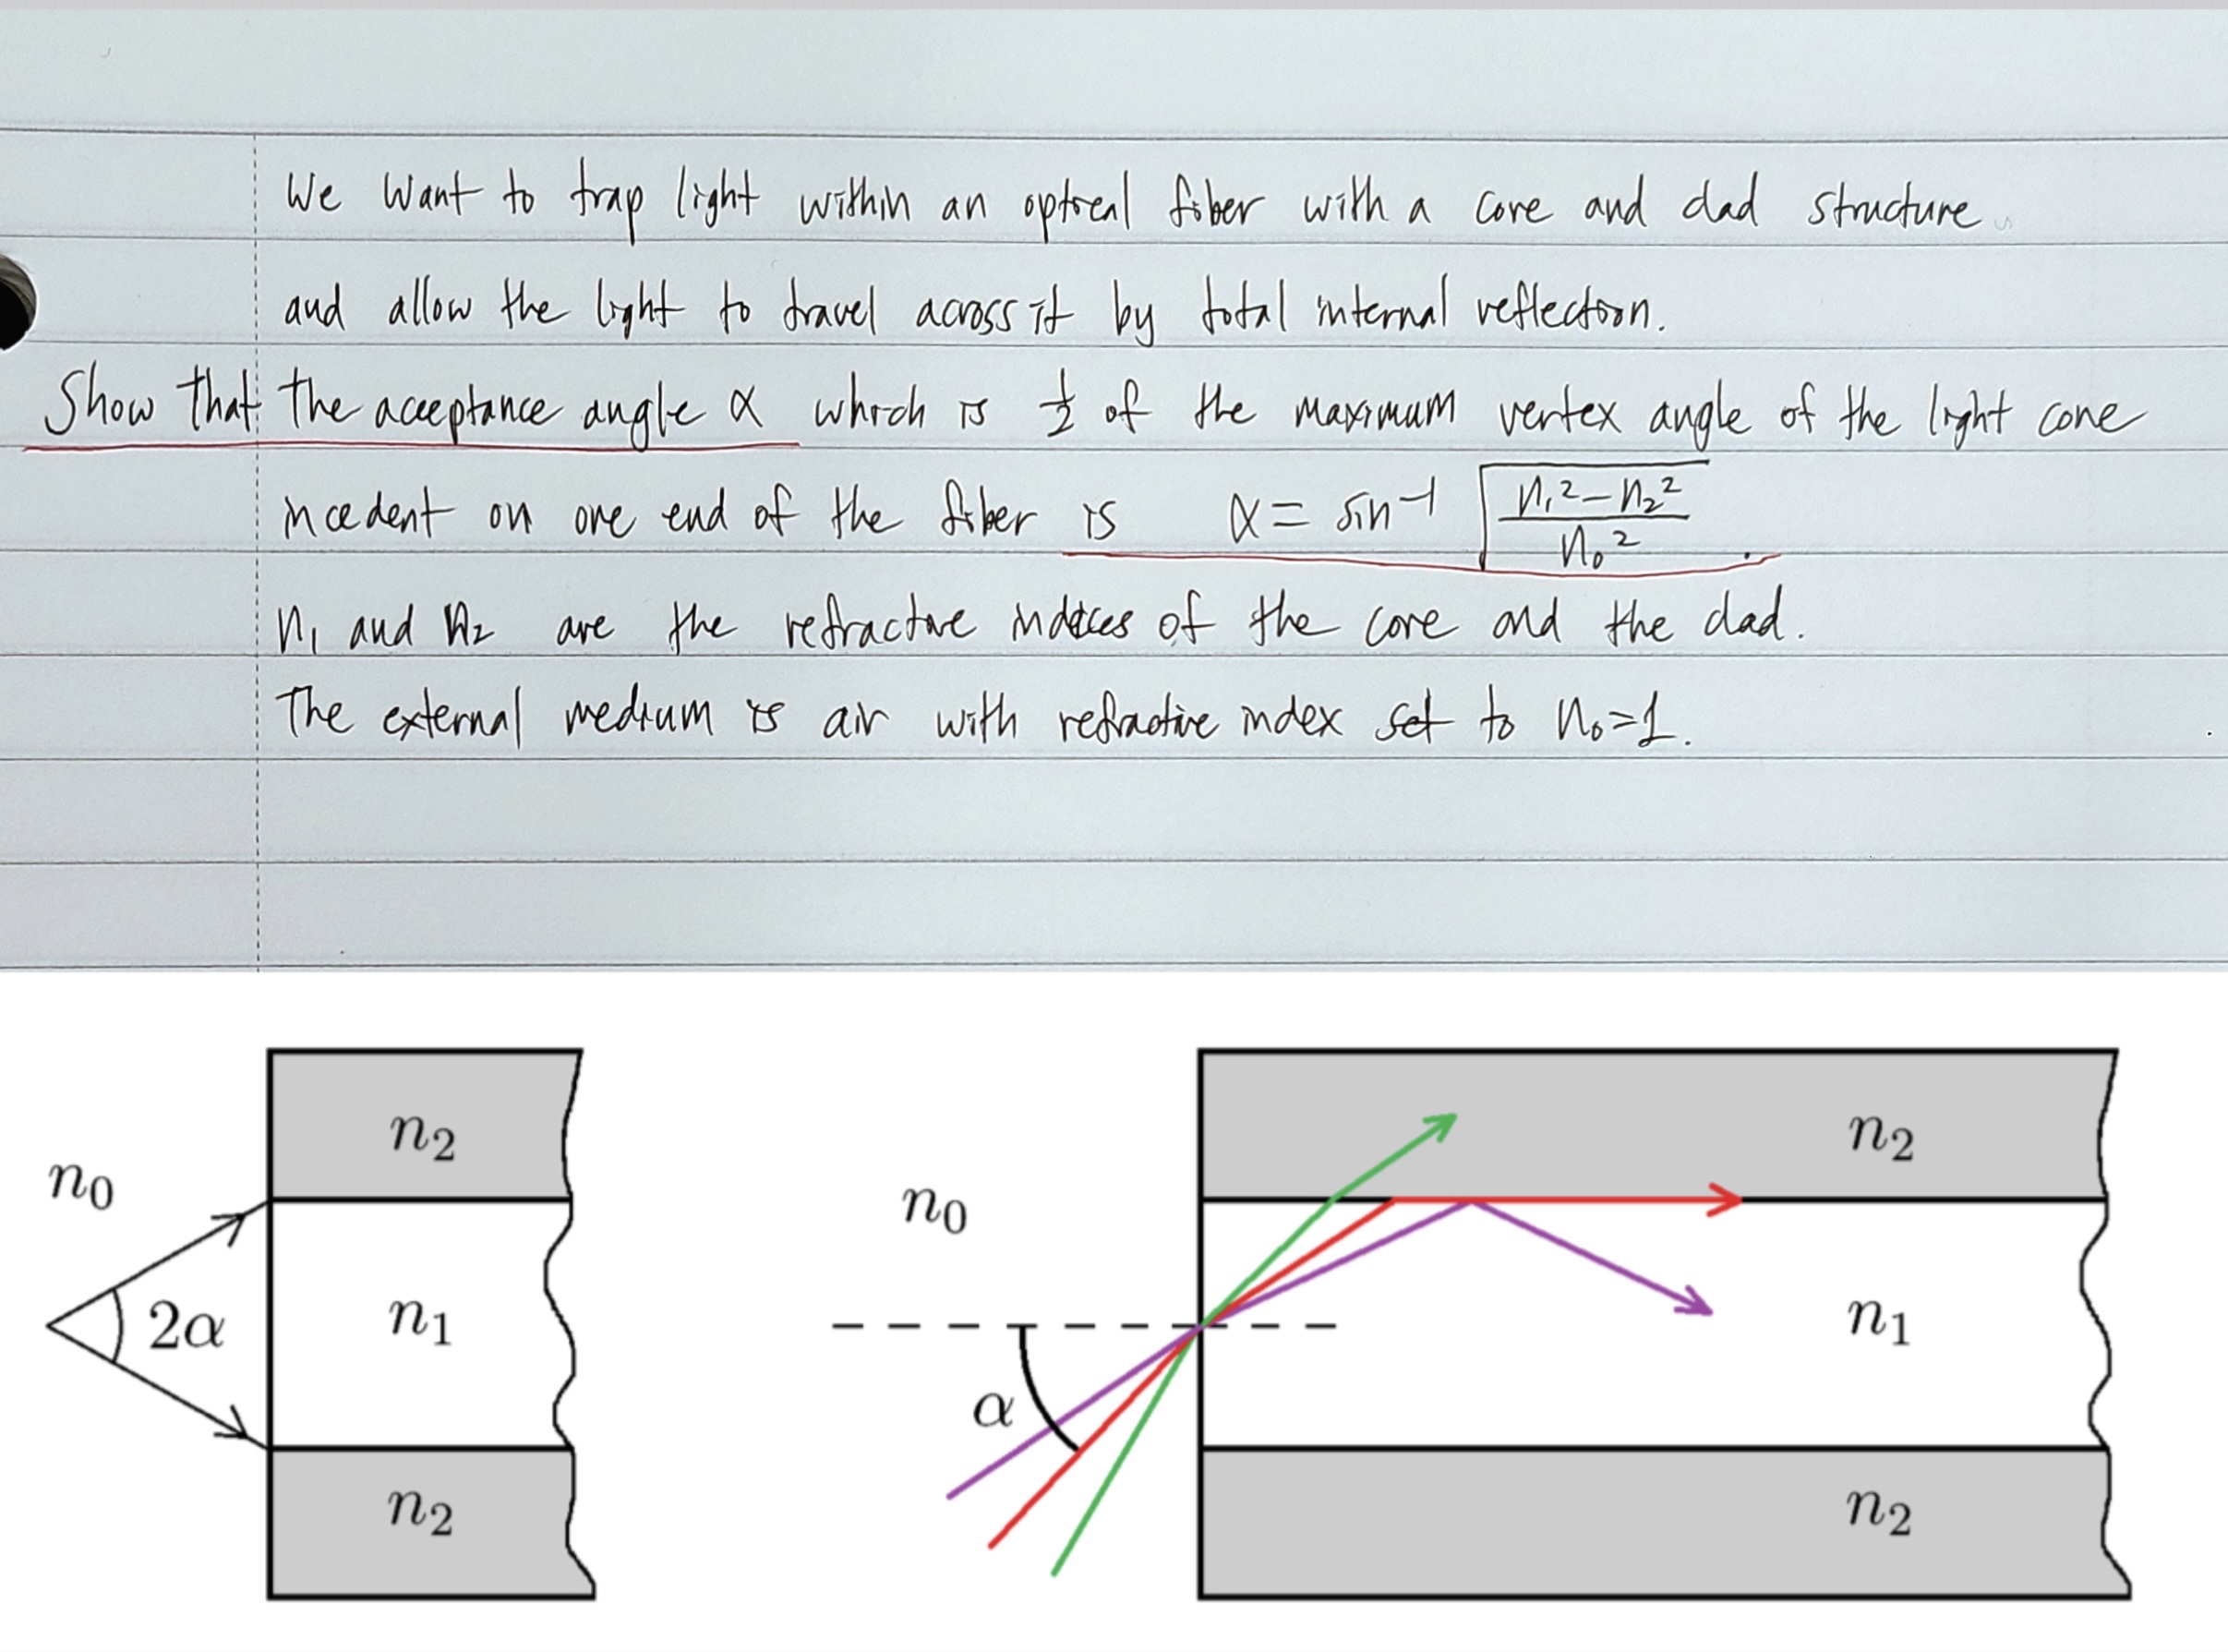 We want to trap light within an optical fiber with a core and clad structure
and allow the light to travel across it by total internal reflection.
Show that the acceptance angle α which is 1/2 of the maximum vertex angle of the light cone
incedent on one end of the fiber is α = sin⁻¹ √((n₁² − n₂²)/n₀²).
n₁ and n₂ are the refractive indices of the core and the clad.
The external medium is air with refractive index set to n₀=1.
n₂ n₂
n₀ n₀
2α n₁ n₁
α
n₂ n₂